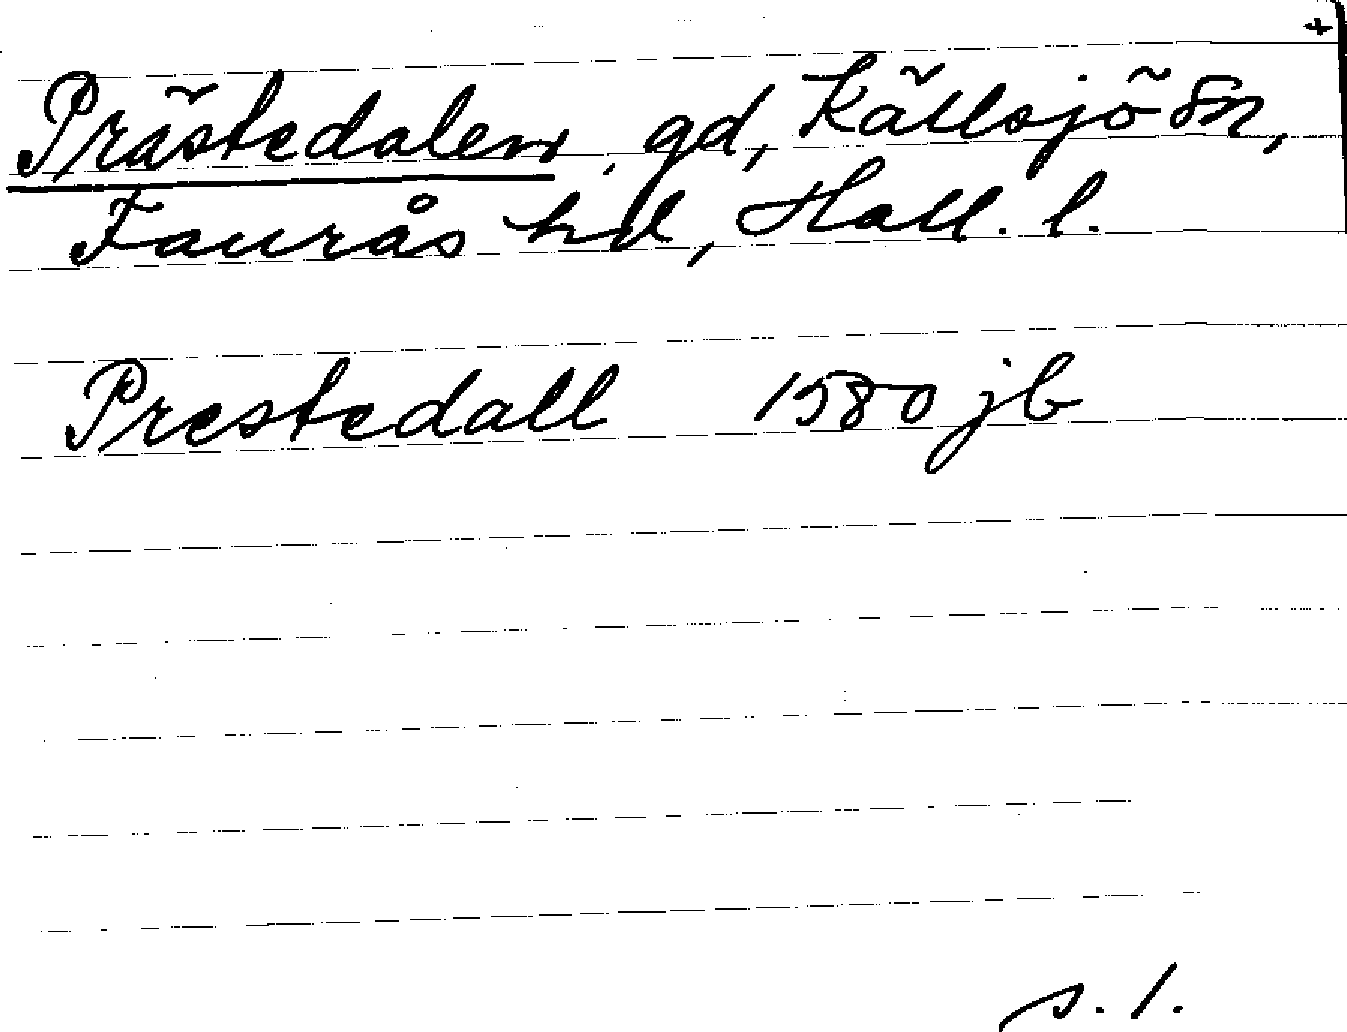 +
Prästedalen, gd, Källsjö sn,
Faurås hd, Hall. l.
Prestedall 1580 jb
s. 1.